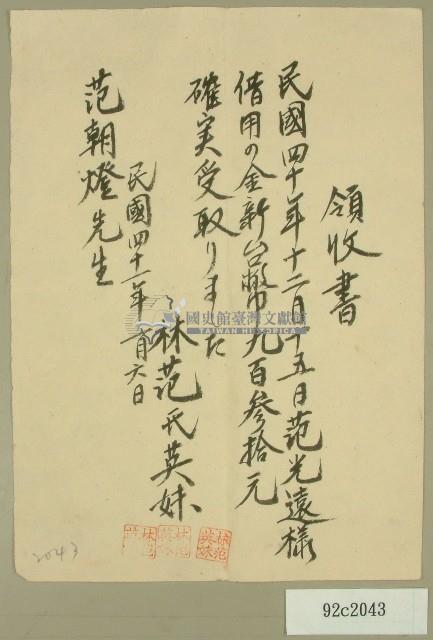 領收書
民國四十年十二月十五日范光遠樣
借用の金新台幣九百參拾元
確実受取りました
林范氏英妹
民國四十一年二月六日
范朝燈先生
國史館臺灣文獻館
TAIWAN HISTORICA
林范英妹
2043
92c2043